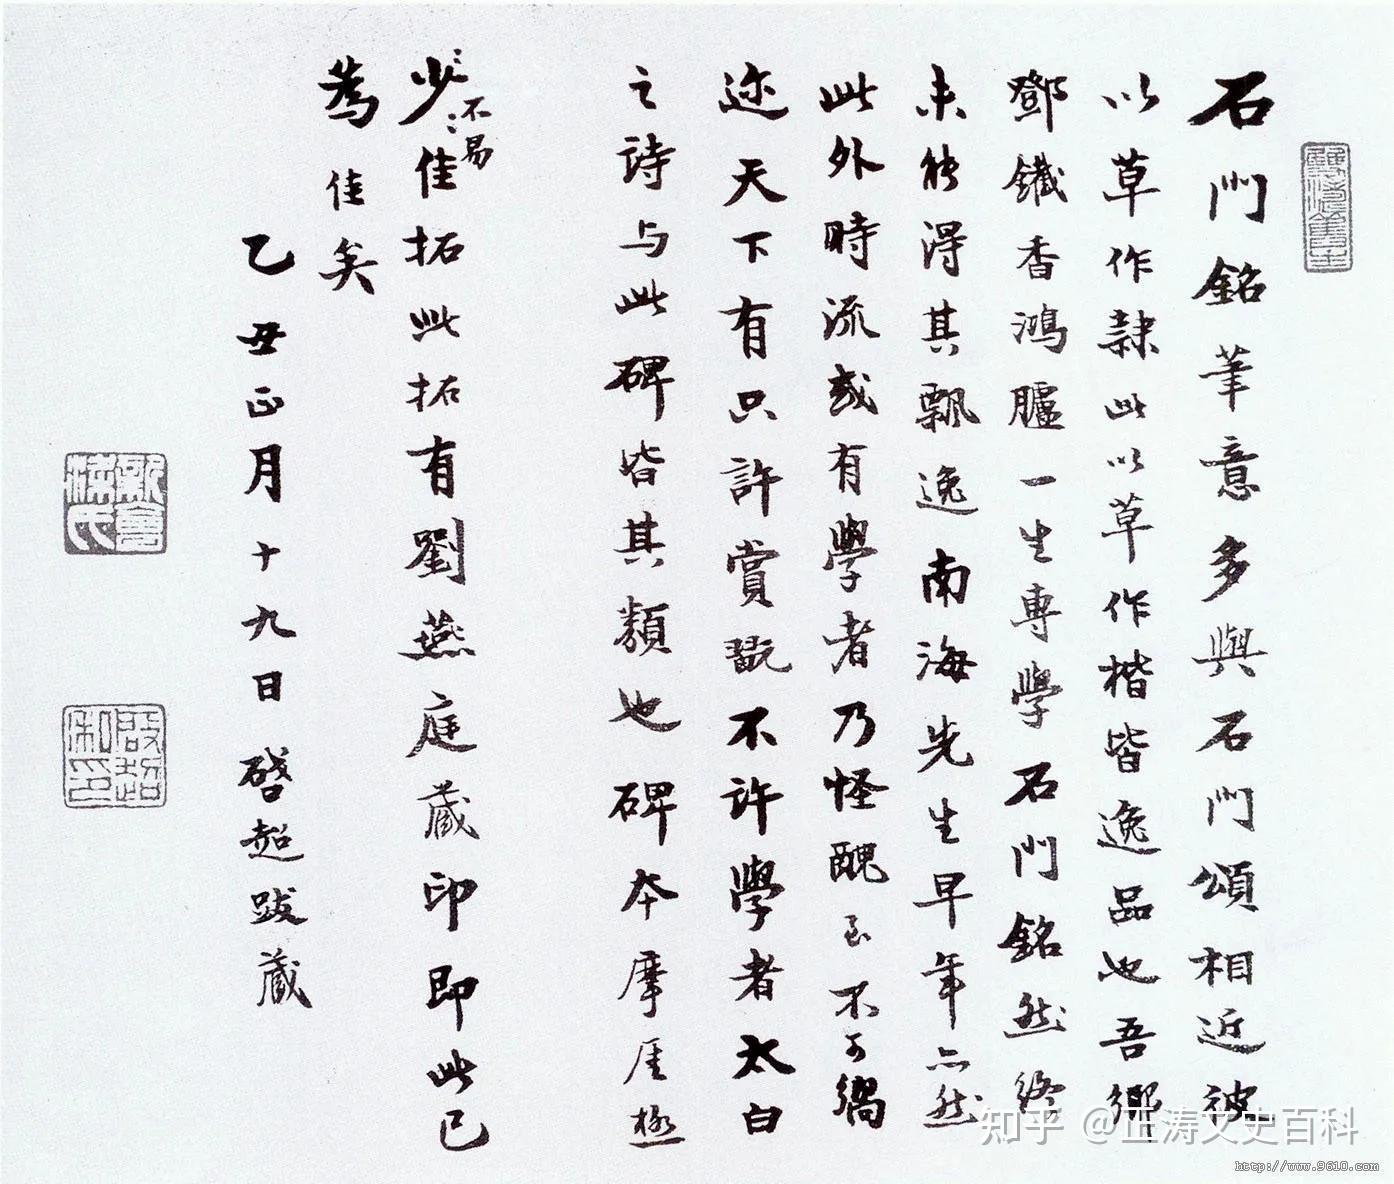 石門銘筆意多與石門頌相近彼
以草作隷此以草作楷皆逸品也吾鄉
鄧鐵香鴻臚一生專學石門銘然終
未能得其飄逸南海先生早年亦然
此外時流或有學者乃怪醜至不可嚮
迩天下有只許賞翫不許學者太白
之詩与此碑皆其類也碑本摩厓極
不易
少佳拓此拓有劉燕庭藏印即此已
為佳矣
乙丑正月十九日啓超跋藏
新會梁氏
啟超私印
知乎 @正涛文史百科
http://www.9610.com